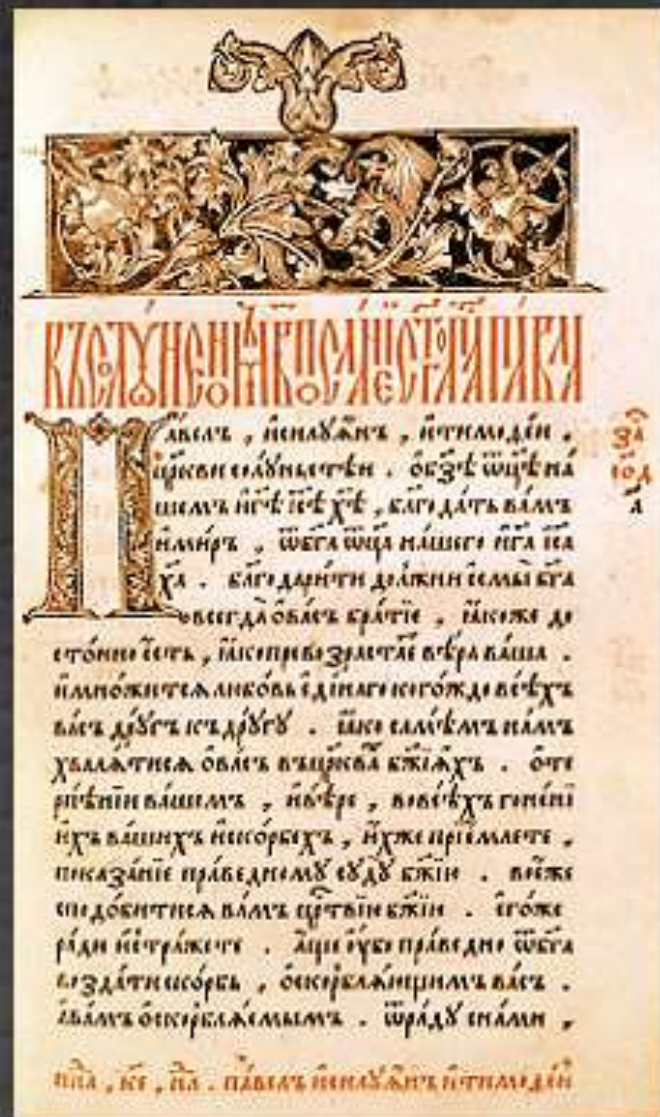 Къ солꙋ́нѧномъ в҃ посла́нїе ст҃го апⷭ҇ла па́вла
Па́велъ , и҆ силꙋа́нъ , и҆ тимоѳе́и ,
цр҃кви солꙋ́ньстѣи . о҆ бз҃ѣ ѿц҃ѣ на́
шемъ и҆ гⷭ҇ѣ і҆с҃ѣ хⷭ҇ѣ , блг҃ода́ть ва́мъ
и҆ ми́ръ , ѿ бг҃а ѿц҃а на́шего и҆ гⷭ҇а і҆с҃а
хⷭ҇а . благодари́ти до́лжни є҆смы̀ бг҃а
всегда̀ о҆ ва́съ бра́тїе , ꙗ҆́коже до
сто́йно є҆́сть , ꙗ҆́ко превозраста́є вѣ́ра ва́ша .
и҆ мно́жится любо́вь є҆ди́наго кого́ждо всѣ́хъ
ва́съ дрꙋ́гъ къ дрꙋ́гꙋ . ꙗ҆́ко самѣ́мъ на́мъ
хвали́тися о҆ ва́съ въ цр҃ква́ бж҃їѧхъ . о҆ те
рпѣ́нїи ва́шемъ , и҆ вѣ́ре , во всѣ́хъ гоне́нї
ихъ ва́шихъ и҆ ско́рбехъ , и҆́хже прїе́млете ,
показа́нїе пра́веднομꙋ сꙋдꙋ̀ бж҃їю . во є҆́же
сподо́битися ва́мъ црⷭ҇твїю бж҃їю . є҆го́же
ра́ди и҆ стра́жете . а҆́ще ᲂу҆́бо пра́ведно ѿ бг҃а
возда́ти ско́рбь , ѡ҆скорблѧ́ющимъ ва́съ .
а҆ ва́мъ ѡ҆скорблѧ́емымъ . ѿра́дꙋ с на́ми ,
за҃
сод
а҃
нл҃а , ке , нл҃а . па́велъ и҆ силꙋа́нъ и҆ тимоѳе́и